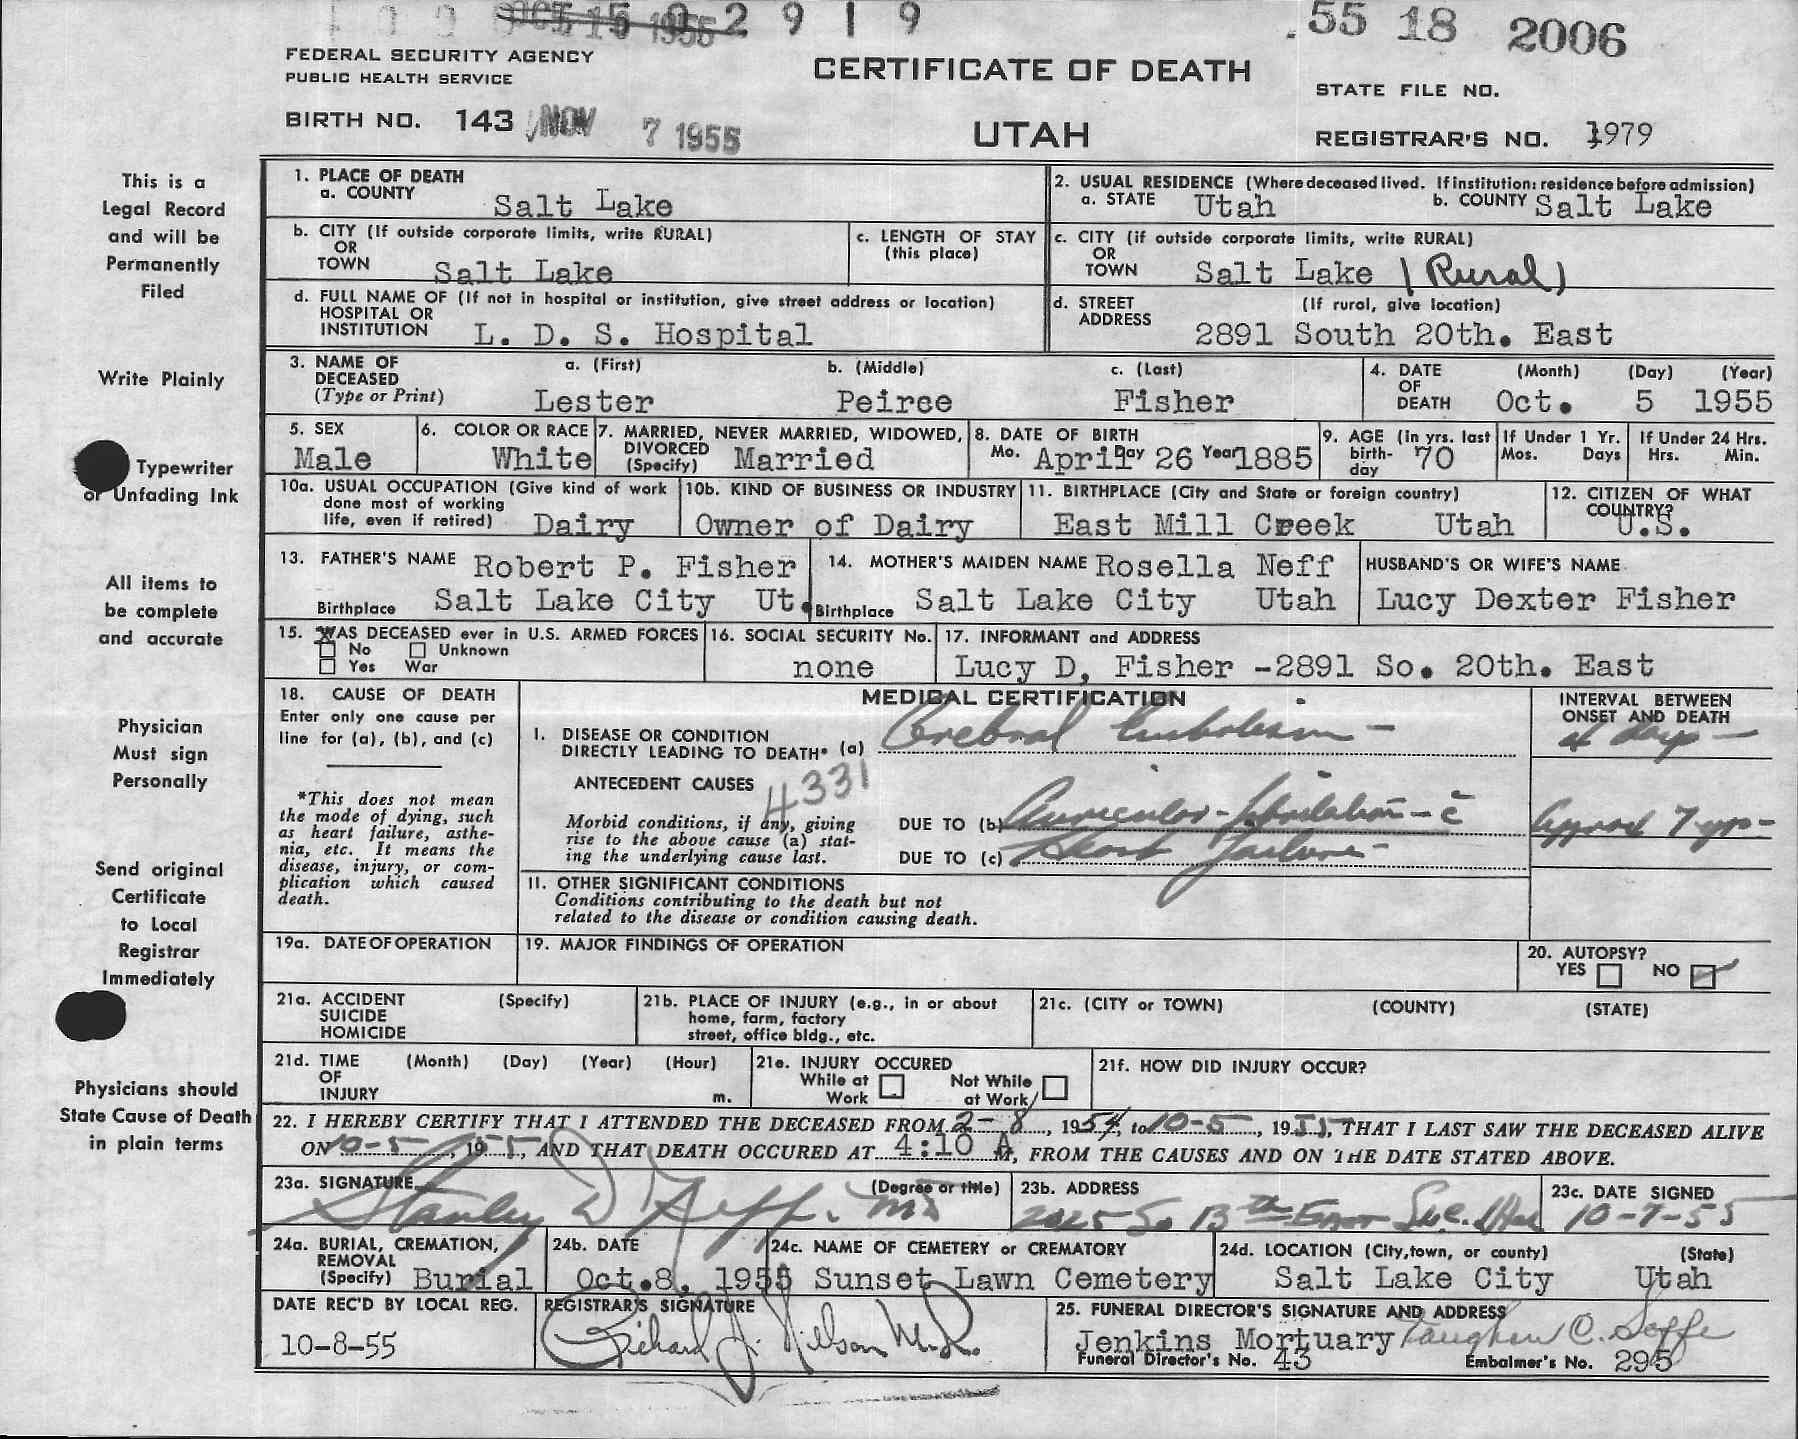 OCT 15 1955 2919
55 18 2006
FEDERAL SECURITY AGENCY
PUBLIC HEALTH SERVICE
CERTIFICATE OF DEATH
STATE FILE NO.
BIRTH NO. 143 NOV 7 1955
UTAH
REGISTRAR'S NO. 1979
This is a
Legal Record
and will be
Permanently
Filed
Write Plainly
Typewriter
or Unfading Ink
All items to
be complete
and accurate
Physician
Must sign
Personally
Send original
Certificate
to Local
Registrar
Immediately
Physicians should
State Cause of Death
in plain terms
1. PLACE OF DEATH
a. COUNTY Salt Lake
2. USUAL RESIDENCE (Where deceased lived. If institution: residence before admission)
a. STATE Utah b. COUNTY Salt Lake
b. CITY (If outside corporate limits, write RURAL)
OR
TOWN Salt Lake
c. LENGTH OF STAY
(this place)
c. CITY (if outside corporate limits, write RURAL)
OR
TOWN Salt Lake (Rural)
d. FULL NAME OF (If not in hospital or institution, give street address or location)
HOSPITAL OR
INSTITUTION L. D. S. Hospital
d. STREET (If rural, give location)
ADDRESS 2891 South 20th. East
3. NAME OF
DECEASED
(Type or Print)
a. (First) b. (Middle) c. (Last)
Lester Peirce Fisher
4. DATE (Month) (Day) (Year)
OF
DEATH Oct. 5 1955
5. SEX
Male
6. COLOR OR RACE
White
7. MARRIED, NEVER MARRIED, WIDOWED,
DIVORCED
(Specify) Married
8. DATE OF BIRTH
Mo. April Day 26 Year 1885
9. AGE (In yrs. last
birth-
day 70
If Under 1 Yr.
Mos. Days
If Under 24 Hrs.
Hrs. Min.
10a. USUAL OCCUPATION (Give kind of work
done most of working
life, even if retired) Dairy
10b. KIND OF BUSINESS OR INDUSTRY
Owner of Dairy
11. BIRTHPLACE (City and State or foreign country)
East Mill Creek Utah
12. CITIZEN OF WHAT
COUNTRY?
U.S.
13. FATHER'S NAME Robert P. Fisher
Birthplace Salt Lake City Ut.
14. MOTHER'S MAIDEN NAME Rosella Neff
Birthplace Salt Lake City Utah
HUSBAND'S OR WIFE'S NAME
Lucy Dexter Fisher
15. WAS DECEASED ever in U.S. ARMED FORCES
No Unknown
Yes War
16. SOCIAL SECURITY No.
none
17. INFORMANT and ADDRESS
Lucy D, Fisher -2891 So. 20th. East
18. CAUSE OF DEATH
Enter only one cause per
line for (a), (b), and (c)
*This does not mean
the mode of dying, such
as heart failure, asthe-
nia, etc. It means the
disease, injury, or com-
plication which caused
death.
MEDICAL CERTIFICATION
INTERVAL BETWEEN
ONSET AND DEATH
I. DISEASE OR CONDITION
DIRECTLY LEADING TO DEATH* (a) Cerebral Embolism - 4 days -
ANTECEDENT CAUSES
4331
Morbid conditions, if any, giving
rise to the above cause (a) stat-
ing the underlying cause last.
DUE TO (b) Auricular - fibrillation - c̄ Approx 7 yrs -
DUE TO (c) Heart failure -
11. OTHER SIGNIFICANT CONDITIONS
Conditions contributing to the death but not
related to the disease or condition causing death.
19a. DATE OF OPERATION
19. MAJOR FINDINGS OF OPERATION
20. AUTOPSY?
YES NO
21a. ACCIDENT (Specify)
SUICIDE
HOMICIDE
21b. PLACE OF INJURY (e.g., in or about
home, farm, factory
street, office bldg., etc.
21c. (CITY or TOWN) (COUNTY) (STATE)
21d. TIME (Month) (Day) (Year) (Hour)
OF
INJURY m.
21e. INJURY OCCURED
While at Work Not While at Work
21f. HOW DID INJURY OCCUR?
22. I HEREBY CERTIFY THAT I ATTENDED THE DECEASED FROM 2-8, 1954, to 10-5, 1955, THAT I LAST SAW THE DECEASED ALIVE
ON 10-5, 1955, AND THAT DEATH OCCURED AT 4:10 A m, FROM THE CAUSES AND ON THE DATE STATED ABOVE.
23a. SIGNATURE (Degree or title)
Stanley D Neff. MD
23b. ADDRESS
2025 So 13th East S.L.C. Utah
23c. DATE SIGNED
10-7-55
24a. BURIAL, CREMATION,
REMOVAL
(Specify) Burial
24b. DATE
Oct.8, 1955
24c. NAME OF CEMETERY or CREMATORY
Sunset Lawn Cemetery
24d. LOCATION (City,town, or county) (State)
Salt Lake City Utah
DATE REC'D BY LOCAL REG.
10-8-55
REGISTRAR'S SIGNATURE
Richard J. Nelson M.D.
25. FUNERAL DIRECTOR'S SIGNATURE AND ADDRESS
Jenkins Mortuary Vaughn C. Soffe
Funeral Director's No. 43 Embalmer's No. 295